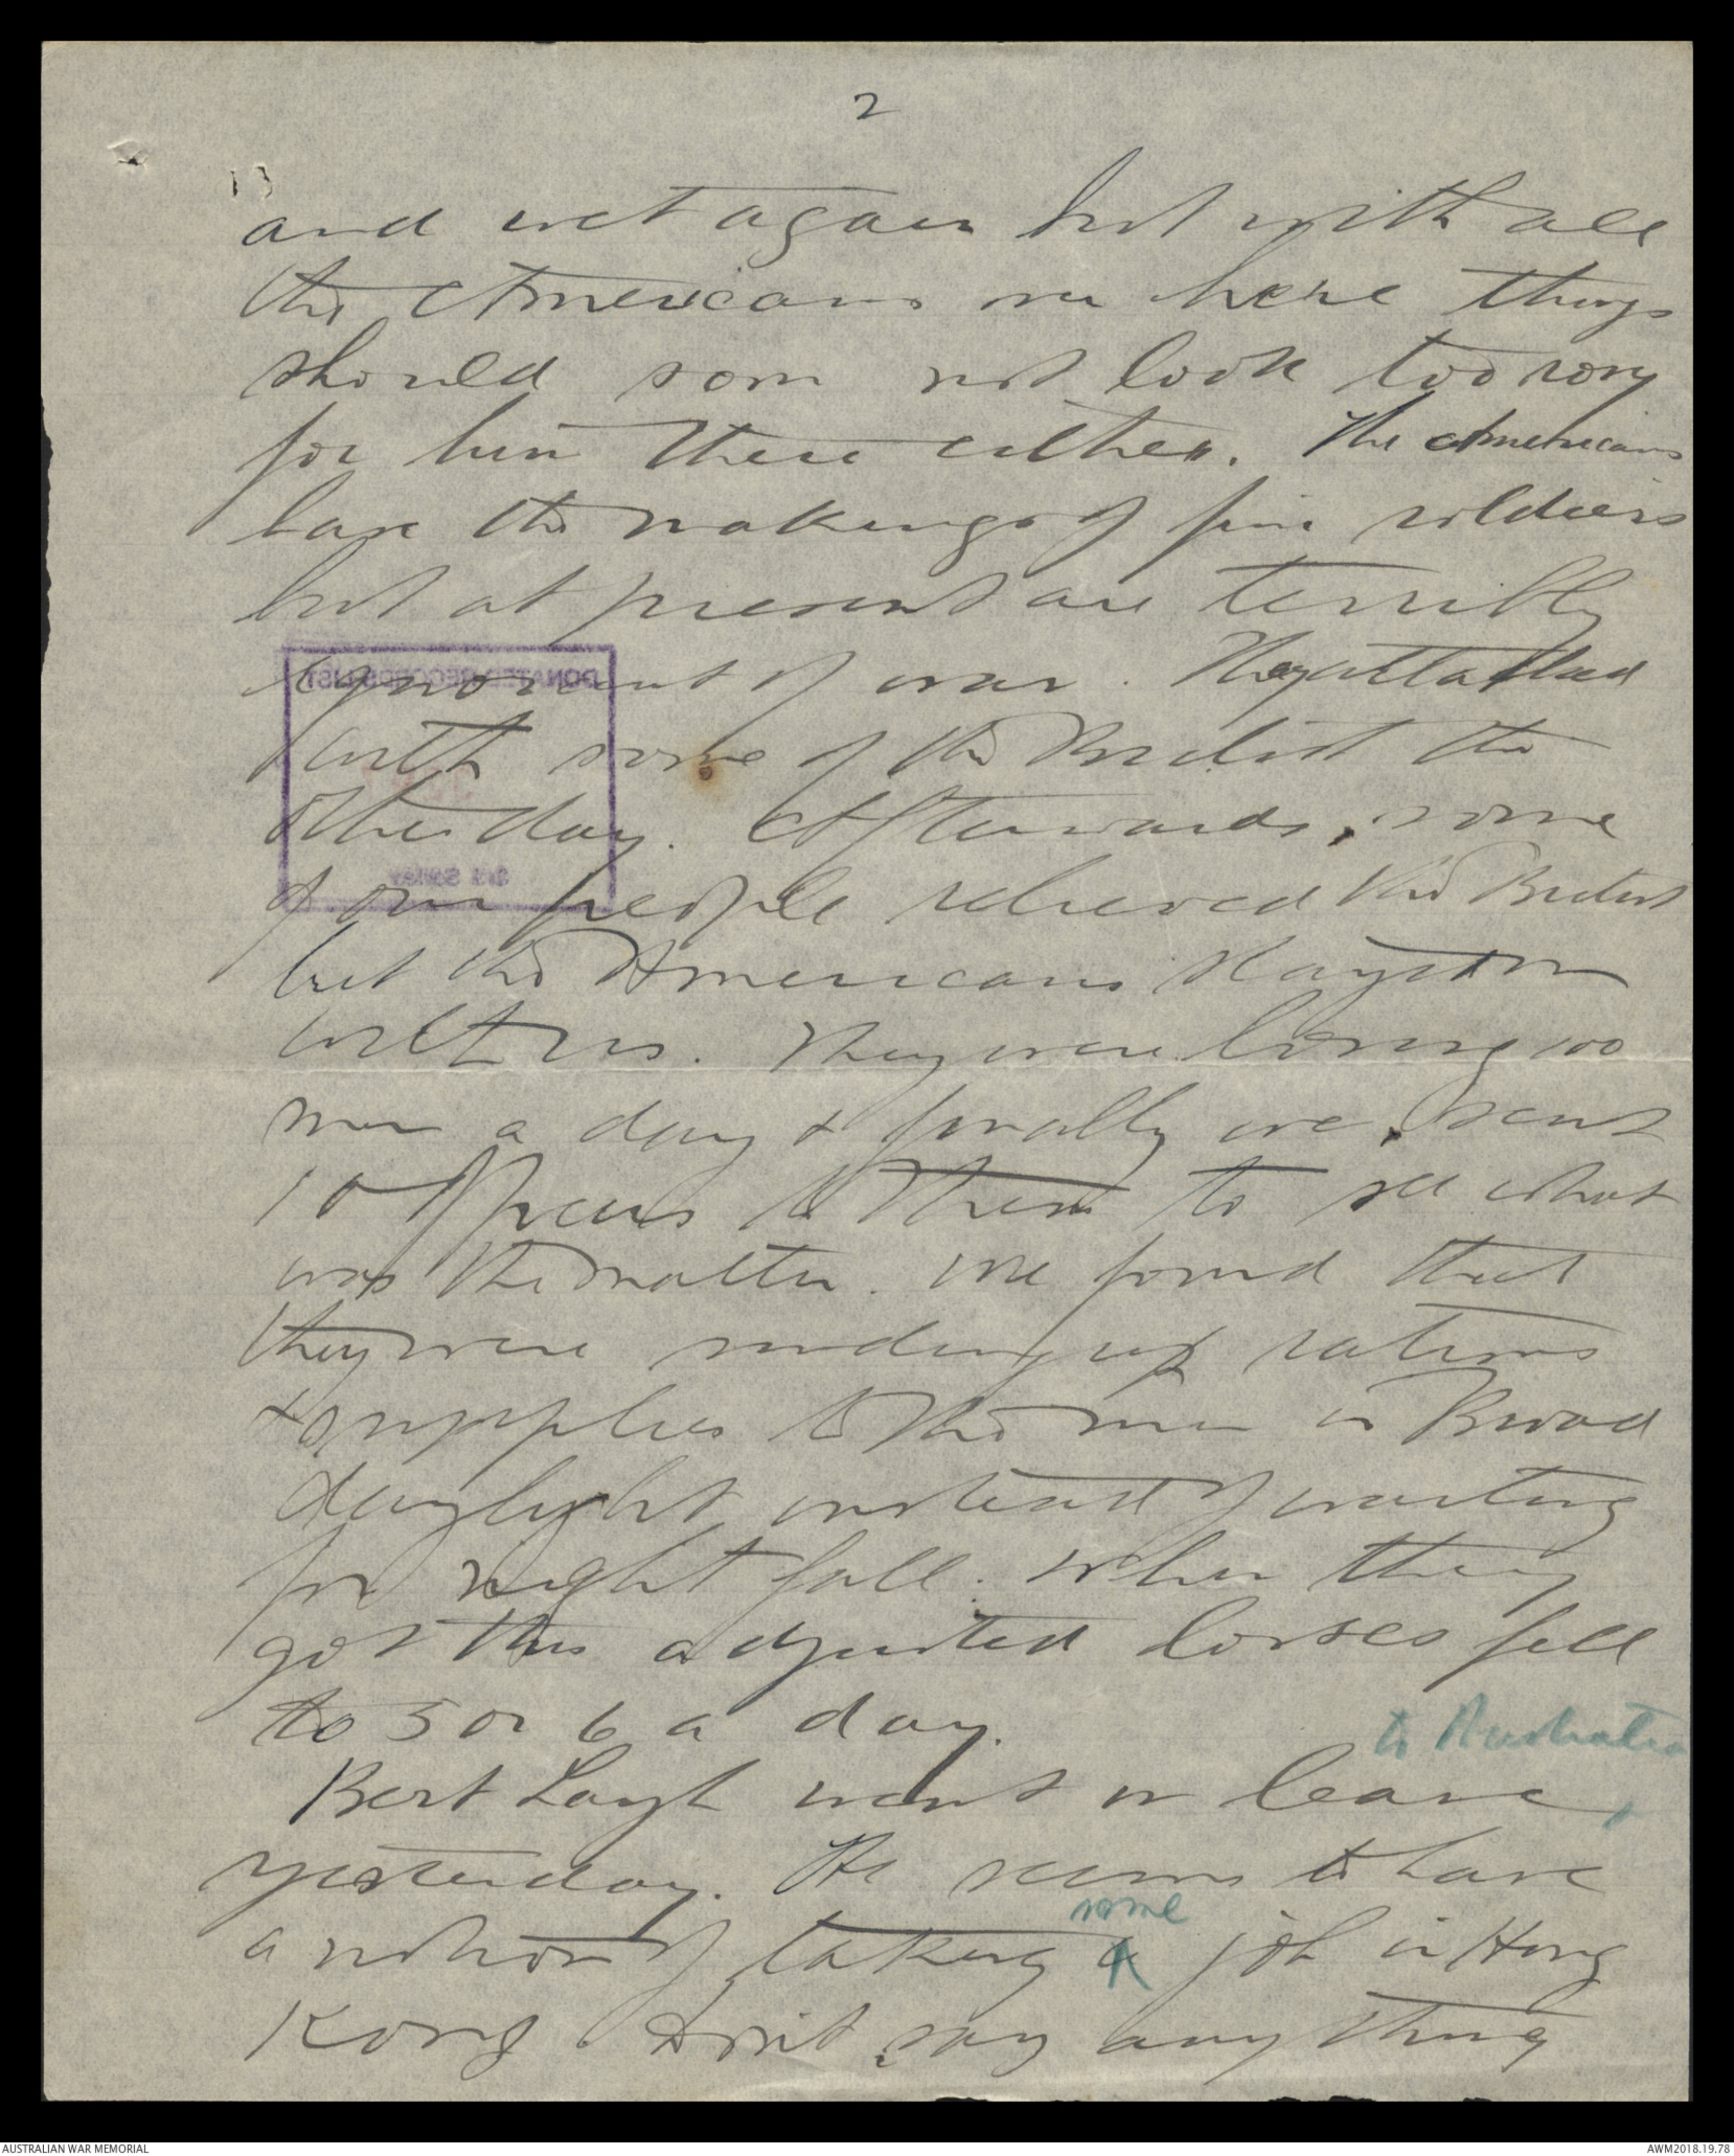 2
and wet again but with all
the Americans over here things
should soon not look too rosy
for him there either. The Americans
have the makings of fine soldiers
but at present are terribly
ignorant of war. They attacked
with some of the British the
other day. Afterwards, some
of our people relieved the British
but the Americans stayed on
with us. They were losing 100
men a day & finally we sent
10 officers to them to see what
was the matter. We found that
they were sending up rations
& supplies to the men in Broad
daylight instead of waiting
for night fall. When they
got this adjusted losses fell
to 5 or 6 a day.
to Australia
Bert Layh went on leave,
yesterday. He seems to have
some
a notion of taking a job in Hong
Kong. Don't say any thing
DONATED RECORDS LIST
AUSTRALIAN WAR MEMORIAL
AWM2018.19.78